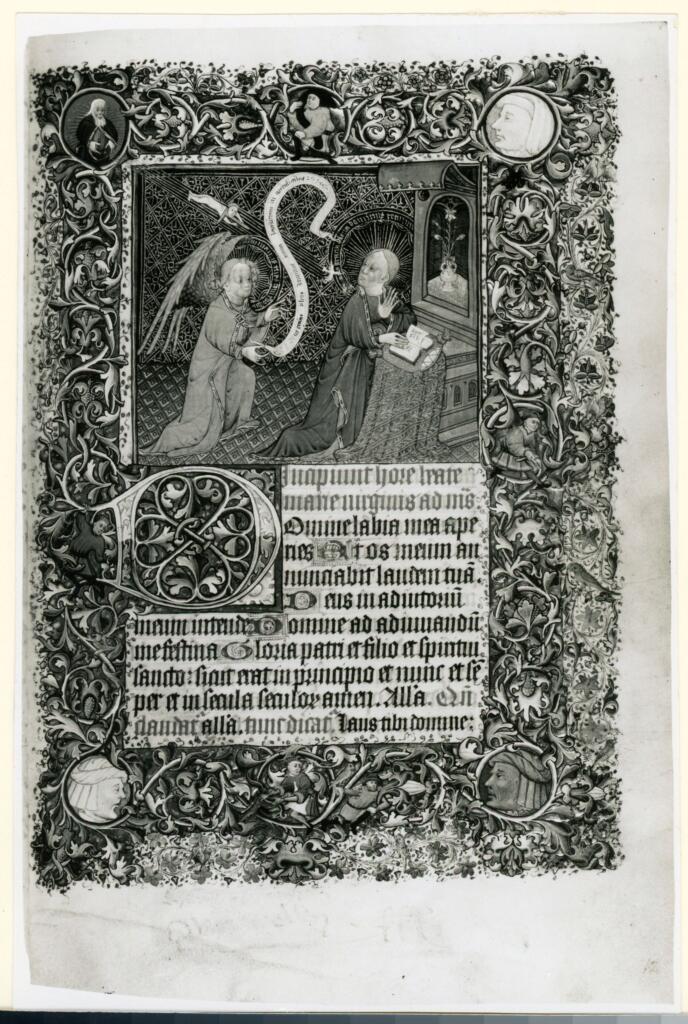 Incipiunt hore beate
marie virginis ad m̄s
Domine labia mea ape
ries Et os meum an
nunciabit laudem tuā.
Deus in adiutoriū
meum intende Domine ad adiuuandū
me festina Gloria patri et filio et spiritui
sancto: sicut erat in principio et nunc et sē
per et in secula seculoꝝ amen. All'a. Qn̄
claudat̄ all'a. tunc dicat̄. Laus tibi domine: